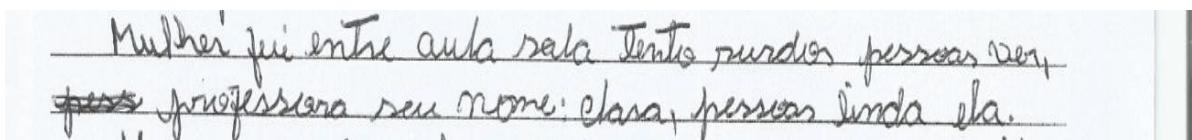 Mulher fui entre aula sala Tento surdos pessoas ver,
professora seu nome: Clara, pessoas linda ela.